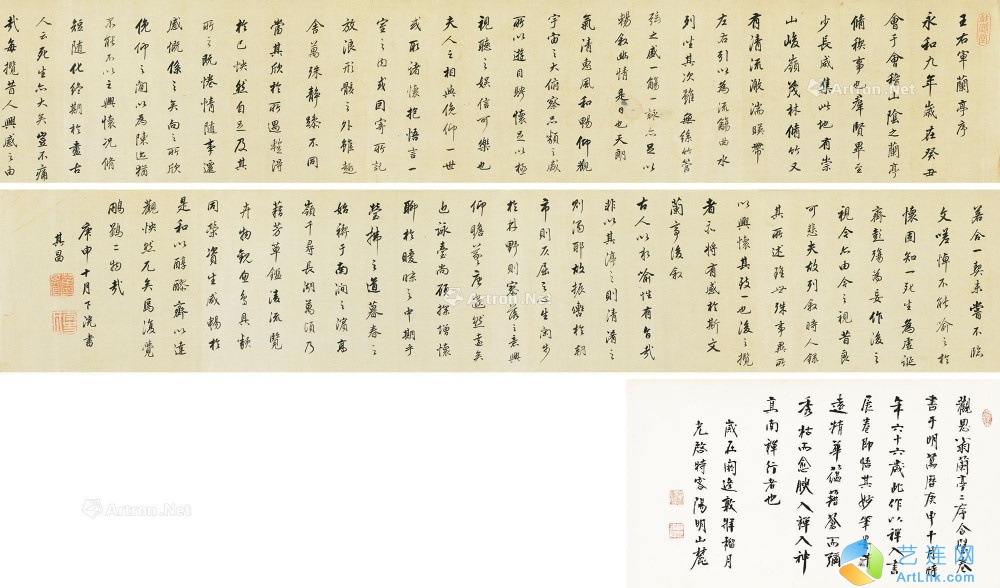 王右軍蘭亭序
永和九年歲在癸丑
會于會稽山陰之蘭亭
脩稧事也羣賢畢至
少長咸集此地有崇
山峻嶺茂林脩竹又
有清流激湍暎帶
左右引以為流觴曲水
列坐其次雖無絲竹管
弦之盛一觴一詠亦足以
暢敘幽情是日也天朗
氣清惠風和暢仰觀
宇宙之大俯察品類之盛
所以遊目騁懷足以極
視聽之娛信可樂也
夫人之相與俛仰一世
或取諸懷抱悟言一
室之內或因寄所託
放浪形骸之外雖趣
舍萬殊靜躁不同
當其欣於所遇蹔得
於己怏然自足及其
所之既惓情隨事遷
感慨係之矣向之所欣
俛仰之間以為陳迹猶
不能不以之興懷況脩
短隨化終期於盡古
人云死生亦大矣豈不痛
哉每攬昔人興感之由
若合一契未嘗不臨
文嗟悼不能喻之於
懷固知一死生為虛誕
齊彭殤為妄作後之
視今亦由今之視昔良
可悲夫故列敘時人錄
其所述雖世殊事異所
以興懷其致一也後之攬
者亦將有感於斯文
蘭亭後敘
古人以水喻性有旨哉
非以其渟之則清淆之
則濁耶故振轡於朝
市則充屈之生閑步
於林野則寥落之意興
仰瞻羲唐邈然遠矣
近詠臺尚顧探增懷
聊於曖昧之中期乎
瑩拂之道暮春之
始禊于南澗之濱高
嶺千尋長湖萬頃乃
藉芳草鑑清流覽
卉物觀魚鳥具類
同榮資生咸暢於
是和以醇醪齊以達
觀怏然兀矣焉復覺
鵬鷃二物哉
庚申十月下浣書
其昌
觀思翁蘭亭二序合璧卷
書于明萬曆庚申十月時
年六十六歲此作以禪入書
展卷即悟其妙筆墨
遠精華蘊藉蒼而彌
秀枯而愈腴入禪入神
真南禪行者也
歲在閼逢敦牂榴月
客陽明山麓
Artron.Net
Artron.Net
Artron.Net
Artron.Net
艺连网
ArtLink.com